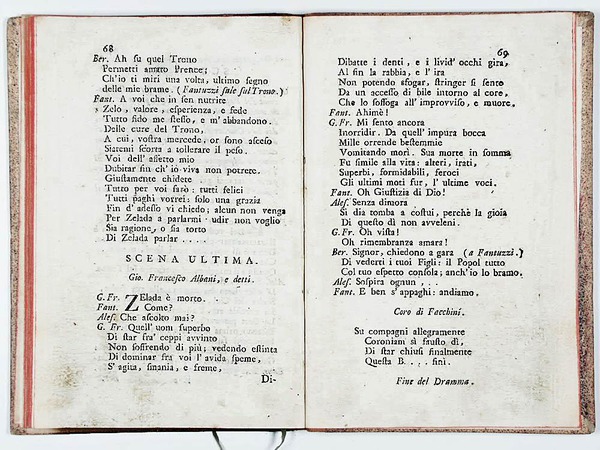 68
Ber. Ah ſu quel Trono
Permetti amato Prence;
Ch'io ti miri una volta, ultimo ſegno
delle mie brame. (Fantuzzi ſale ſul Trono.)
Fant. A voi che in ſen nutrire
Zelo, valore, eſperienza, e fede
Tutto fido me ſteſſo, e m'abbandono.
Delle cure del Trono,
A cui, voſtra mercede, or ſono aſceſo
Statemi ſcorta a tollerare il peſo.
Voi dell' affetto mio
Dubitar fin ch'io viva non potrete.
Giuſtamente chidete
Tutto per voi farò: tutti felici
Tutti paghi votrei: ſolo una grazia
Fin d'adeſſo vi chiedo; alcun non venga
Per Zelada a parlarmi: udir non voglio
Sia ragione, o ſia torto
Di Zelada parlar ....
SCENA ULTIMA.
Gio. Franceſco Albani, e detti.
G. Fr. ZElada è morto.
Fant. Come?
Aleſ. Che aſcolto mai?
G. Fr. Quell' uom ſuperbo
Di ſtar fra' ceppi avvinto
Non ſoffrendo di più; vedendo eſtinta
Di dominar fra voi l' avida ſpeme,
S' agita, ſmania, e freme,
Di-
69
Dibatte i denti, e i livid' occhi gira,
Al fin la rabbia, e l' ira
Non potendo sfogar, ſtringer ſi ſento
Da un acceſſo di bile intorno al core,
Che lo ſoffoga all' improvviſo, e muore.
Fant. Ahimè!
G. Fr. Mi ſento ancora
Inorridir. Da quell' impura bocca
Mille orrende beſtemmie
Vomitando morì. Sua morte in ſomma
Fu ſimile alla vita: alteri, irati,
Superbi, formidabili, feroci
Gli ultimi moti fur, l' ultime voci.
Fant. Oh Giuſtizia di Dio!
Aleſ. Senza dimora
Si dia tomba a coſtui, perchè la gioia
Di queſto dì non avveleni.
G. Fr. Oh viſta!
Oh rimembranza amara!
Ber. Signor, chiedono a gara (a Fantuzzi.)
Di vederti i tuoi Figli: il Popol tutto
Col tuo eſpetto conſola; anch'io lo bramo.
Aleſ. Soſpira ognun ...
Fant. E ben s' appaghi: andiamo.
Coro di Facchini.
Su compagni allegramente
Coroniam sì fauſto dì,
Di ſtar chiuſi finalmente
Queſta B.... finì.
Fine del Dramma.